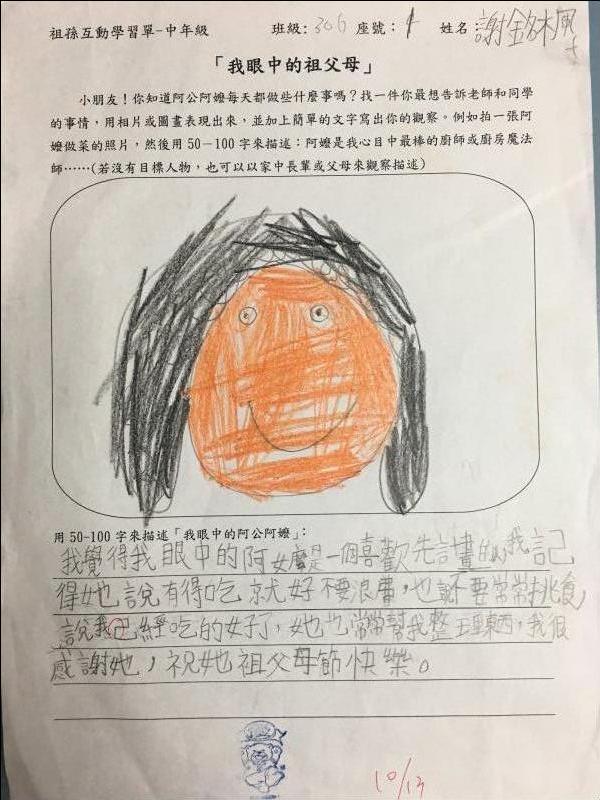 祖孫互動學習單-中年級 班級: 306 座號: 1 姓名: 謝銘楓
「我眼中的祖父母」
小朋友!你知道阿公阿嬤每天都做些什麼事嗎?找一件你最想告訴老師和同學
的事情,用相片或圖畫表現出來,並加上簡單的文字寫出你的觀察。例如拍一張阿
嬤做菜的照片,然後用50-100字來描述:阿嬤是我心目中最棒的廚師或廚房魔法
師……(若沒有目標人物,也可以以家中長輩或父母來觀察描述)
用50-100字來描述「我眼中的阿公阿嬤」:
我覺得我眼中的阿嬤是一個喜歡先計畫的,我記
得她說有得吃就好不要浪費,也說不要常常挑食,
說我己經吃的好了,她也常常幫我整理東西,我很
感謝她,祝她祖父母節快樂。
10/13